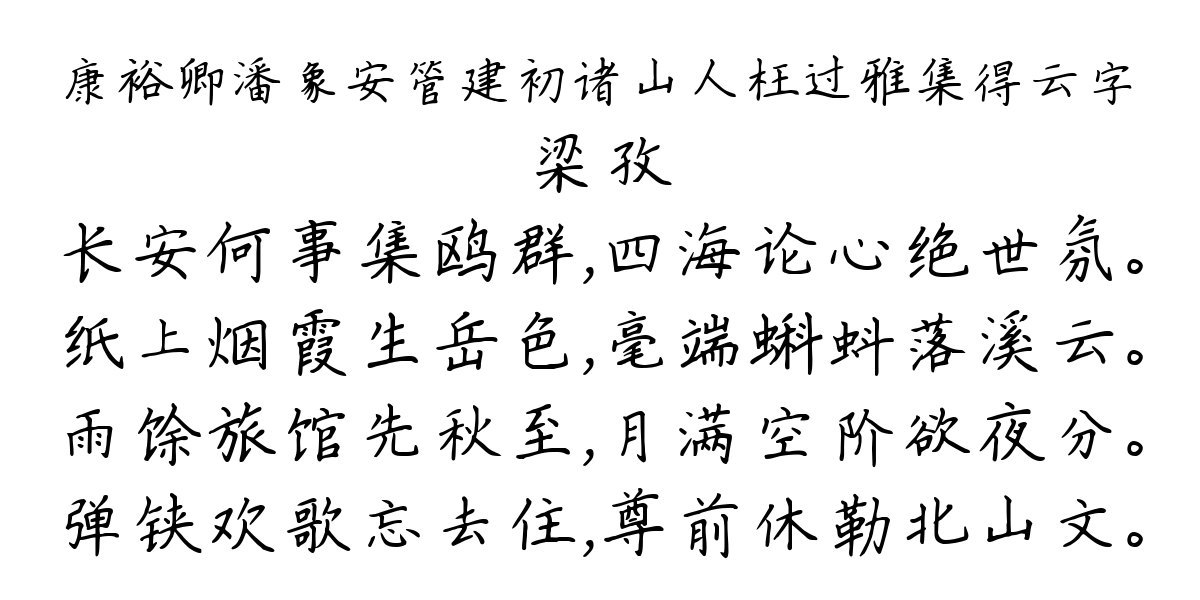 康裕卿潘象安管建初诸山人枉过雅集得云字
梁孜
长安何事集鸥群,四海论心绝世氛。
纸上烟霞生岳色,毫端蝌蚪落溪云。
雨馀旅馆先秋至,月满空阶欲夜分。
弹铗欢歌忘去住,尊前休勒北山文。